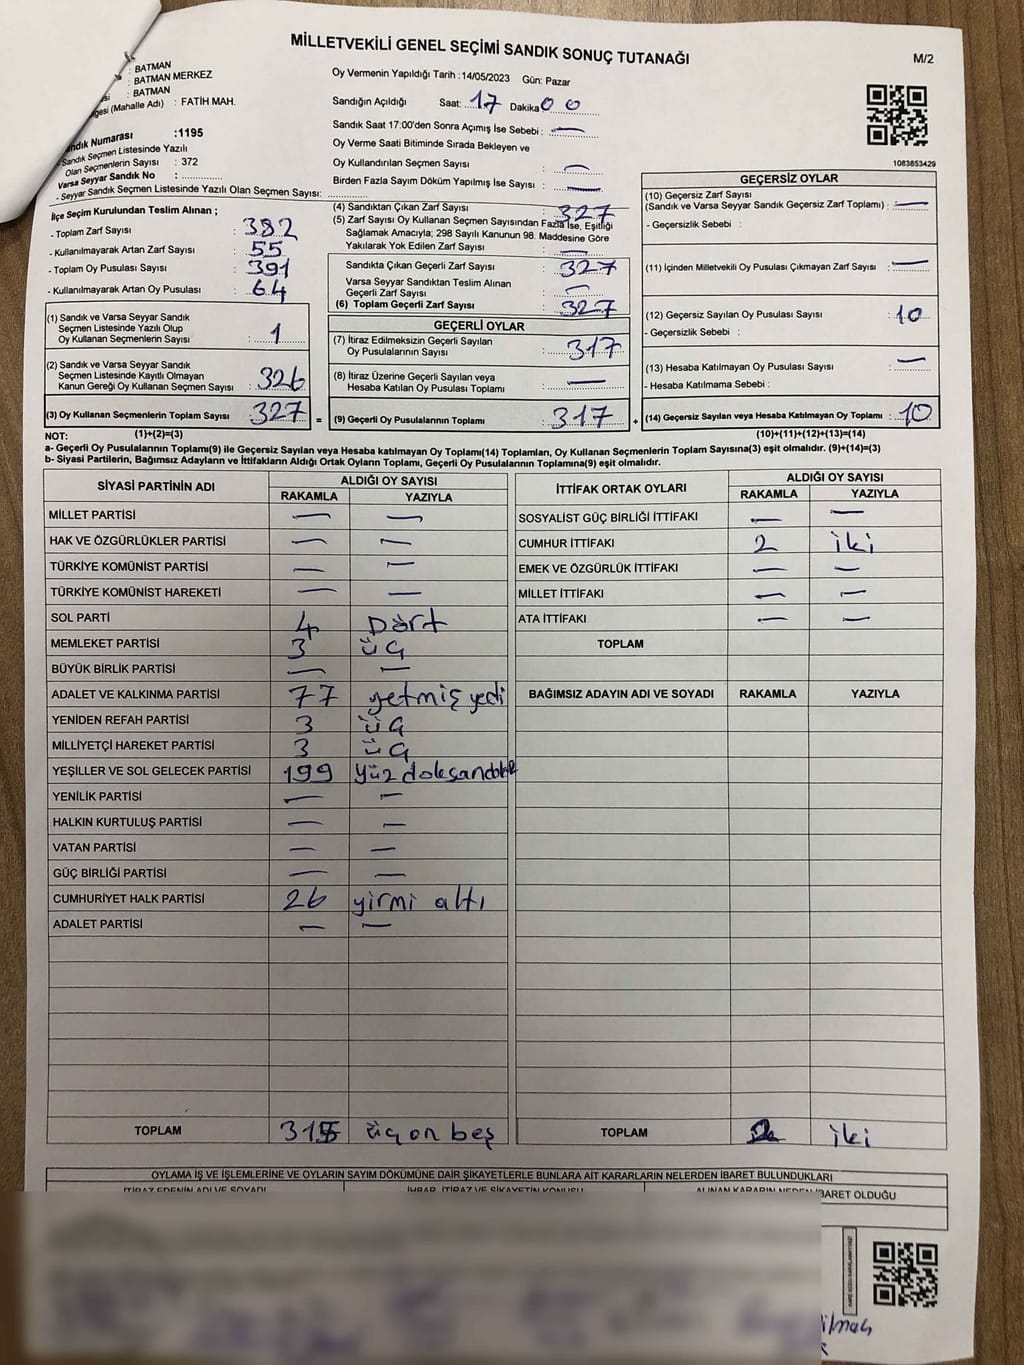 MİLLETVEKİLİ GENEL SEÇİMİ SANDIK SONUÇ TUTANAĞI
M/2
: BATMAN
: BATMAN MERKEZ
: BATMAN
(Mahalle Adı) : FATİH MAH.
Sandık Numarası :1195
-Sandık Seçmen Listesinde Yazılı
Olan Seçmenlerin Sayısı : 372
Varsa Seyyar Sandık No :
- Seyyar Sandık Seçmen Listesinde Yazılı Olan Seçmen Sayısı:
Oy Vermenin Yapıldığı Tarih :14/05/2023 Gün: Pazar
Sandığın Açıldığı Saat: 17 Dakika 00
Sandık Saat 17:00'den Sonra Açımış İse Sebebi : —
Oy Verme Saati Bitiminde Sırada Bekleyen ve
Oy Kullandırılan Seçmen Sayısı : —
Birden Fazla Sayım Döküm Yapılmış İse Sayısı : —
1083853429
İlçe Seçim Kurulundan Teslim Alınan ;
- Toplam Zarf Sayısı : 382
- Kullanılmayarak Artan Zarf Sayısı : 55
- Toplam Oy Pusulası Sayısı : 391
- Kullanılmayarak Artan Oy Pusulası : 64
(1) Sandık ve Varsa Seyyar Sandık
Seçmen Listesinde Yazılı Olup
Oy Kullanan Seçmenlerin Sayısı : 1
(2) Sandık ve Varsa Seyyar Sandık
Seçmen Listesinde Kayıtlı Olmayan
Kanun Gereği Oy Kullanan Seçmen Sayısı : 326
(3) Oy Kullanan Seçmenlerin Toplam Sayısı : 327 =
(4) Sandıktan Çıkan Zarf Sayısı : 327
(5) Zarf Sayısı Oy Kullanan Seçmen Sayısından Fazla İse, Eşitliği
Sağlamak Amacıyla; 298 Sayılı Kanunun 98. Maddesine Göre
Yakılarak Yok Edilen Zarf Sayısı : —
Sandıkta Çıkan Geçerli Zarf Sayısı : 327
Varsa Seyyar Sandıktan Teslim Alınan
Geçerli Zarf Sayısı : —
(6) Toplam Geçerli Zarf Sayısı : 327
GEÇERLİ OYLAR
(7) İtiraz Edilmeksizin Geçerli Sayılan
Oy Pusulalarının Sayısı : 317
(8) İtiraz Üzerine Geçerli Sayılan veya
Hesaba Katılan Oy Pusulası Toplamı : —
(9) Geçerli Oy Pusulalarının Toplamı : 317 +
GEÇERSİZ OYLAR
(10) Geçersiz Zarf Sayısı
(Sandık ve Varsa Seyyar Sandık Geçersiz Zarf Toplamı) : —
- Geçersizlik Sebebi :
(11) İçinden Milletvekili Oy Pusulası Çıkmayan Zarf Sayısı : —
(12) Geçersiz Sayılan Oy Pusulası Sayısı : 10
- Geçersizlik Sebebi :
(13) Hesaba Katılmayan Oy Pusulası Sayısı : —
- Hesaba Katılmama Sebebi :
(14) Geçersiz Sayılan veya Hesaba Katılmayan Oy Toplamı : 10
NOT: (1)+(2)=(3) (10)+(11)+(12)+(13)=(14)
a- Geçerli Oy Pusulalarının Toplamı(9) ile Geçersiz Sayılan veya Hesaba katılmayan Oy Toplamı(14) Toplamları, Oy Kullanan Seçmenlerin Toplam Sayısına(3) eşit olmalıdır. (9)+(14)=(3)
b- Siyasi Partilerin, Bağımsız Adayların ve İttifakların Aldığı Ortak Oyların Toplamı, Geçerli Oy Pusulalarının Toplamına(9) eşit olmalıdır.
SİYASİ PARTİNİN ADI ALDIĞI OY SAYISI
RAKAMLA YAZIYLA
MİLLET PARTİSİ — —
HAK VE ÖZGÜRLÜKLER PARTİSİ — —
TÜRKİYE KOMÜNİST PARTİSİ — —
TÜRKİYE KOMÜNİST HAREKETİ — —
SOL PARTİ 4 Dört
MEMLEKET PARTİSİ 3 üç
BÜYÜK BİRLİK PARTİSİ — —
ADALET VE KALKINMA PARTİSİ 77 yetmiş yedi
YENİDEN REFAH PARTİSİ 3 üç
MİLLİYETÇİ HAREKET PARTİSİ 3 üç
YEŞİLLER VE SOL GELECEK PARTİSİ 199 yüz doksandokuz
YENİLİK PARTİSİ — —
HALKIN KURTULUŞ PARTİSİ — —
VATAN PARTİSİ — —
GÜÇ BİRLİĞİ PARTİSİ — —
CUMHURİYET HALK PARTİSİ 26 yirmi altı
ADALET PARTİSİ — —
TOPLAM 315 üçon beş
İTTİFAK ORTAK OYLARI ALDIĞI OY SAYISI
RAKAMLA YAZIYLA
SOSYALİST GÜÇ BİRLİĞİ İTTİFAKI — —
CUMHUR İTTİFAKI 2 iki
EMEK VE ÖZGÜRLÜK İTTİFAKI — —
MİLLET İTTİFAKI — —
ATA İTTİFAKI — —
TOPLAM
BAĞIMSIZ ADAYIN ADI VE SOYADI RAKAMLA YAZIYLA
TOPLAM 2 iki
OYLAMA İŞ VE İŞLEMLERİNE VE OYLARIN SAYIM DÖKÜMÜNE DAİR ŞİKAYETLERLE BUNLARA AİT KARARLARIN NELERDEN İBARET BULUNDUKLARI
İTİRAZ EDENİN ADI VE SOYADI İHBAR, İTİRAZ VE ŞİKAYETİN KONUSU ALINAN KARARIN NEDEN İBARET OLDUĞU